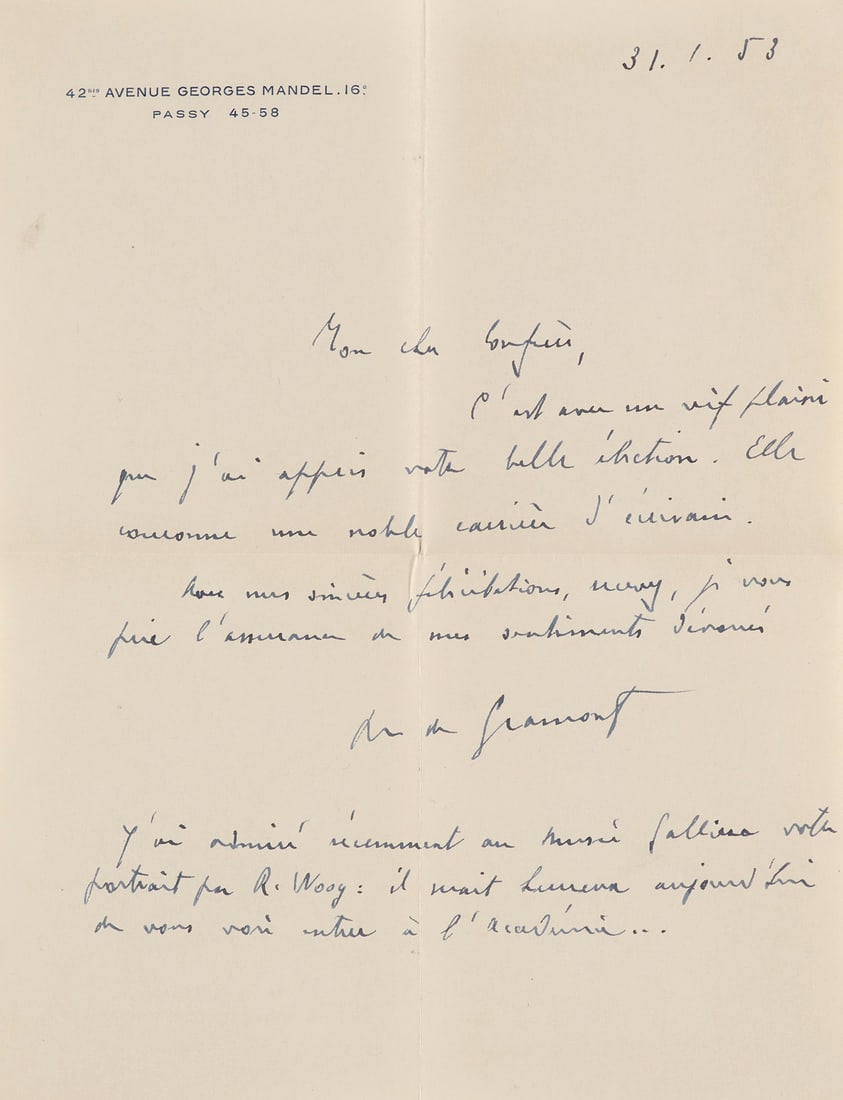 31. 1. 53
42BIS AVENUE GEORGES MANDEL. 16E
PASSY 45-58
Mon cher Confrère,
C'est avec un vif plaisir
que j'ai appris votre belle élection. Elle
couronne une noble carrière d'écrivain.
Avec mes sincères félicitations, recevez, je vous
prie l'assurance de mes sentiments dévoués
de Gramont
J'ai admiré récemment au Musée Galliera votre
portrait par R. Woog : il serait heureux aujourd'hui
de vous voir entrer à l'Académie...